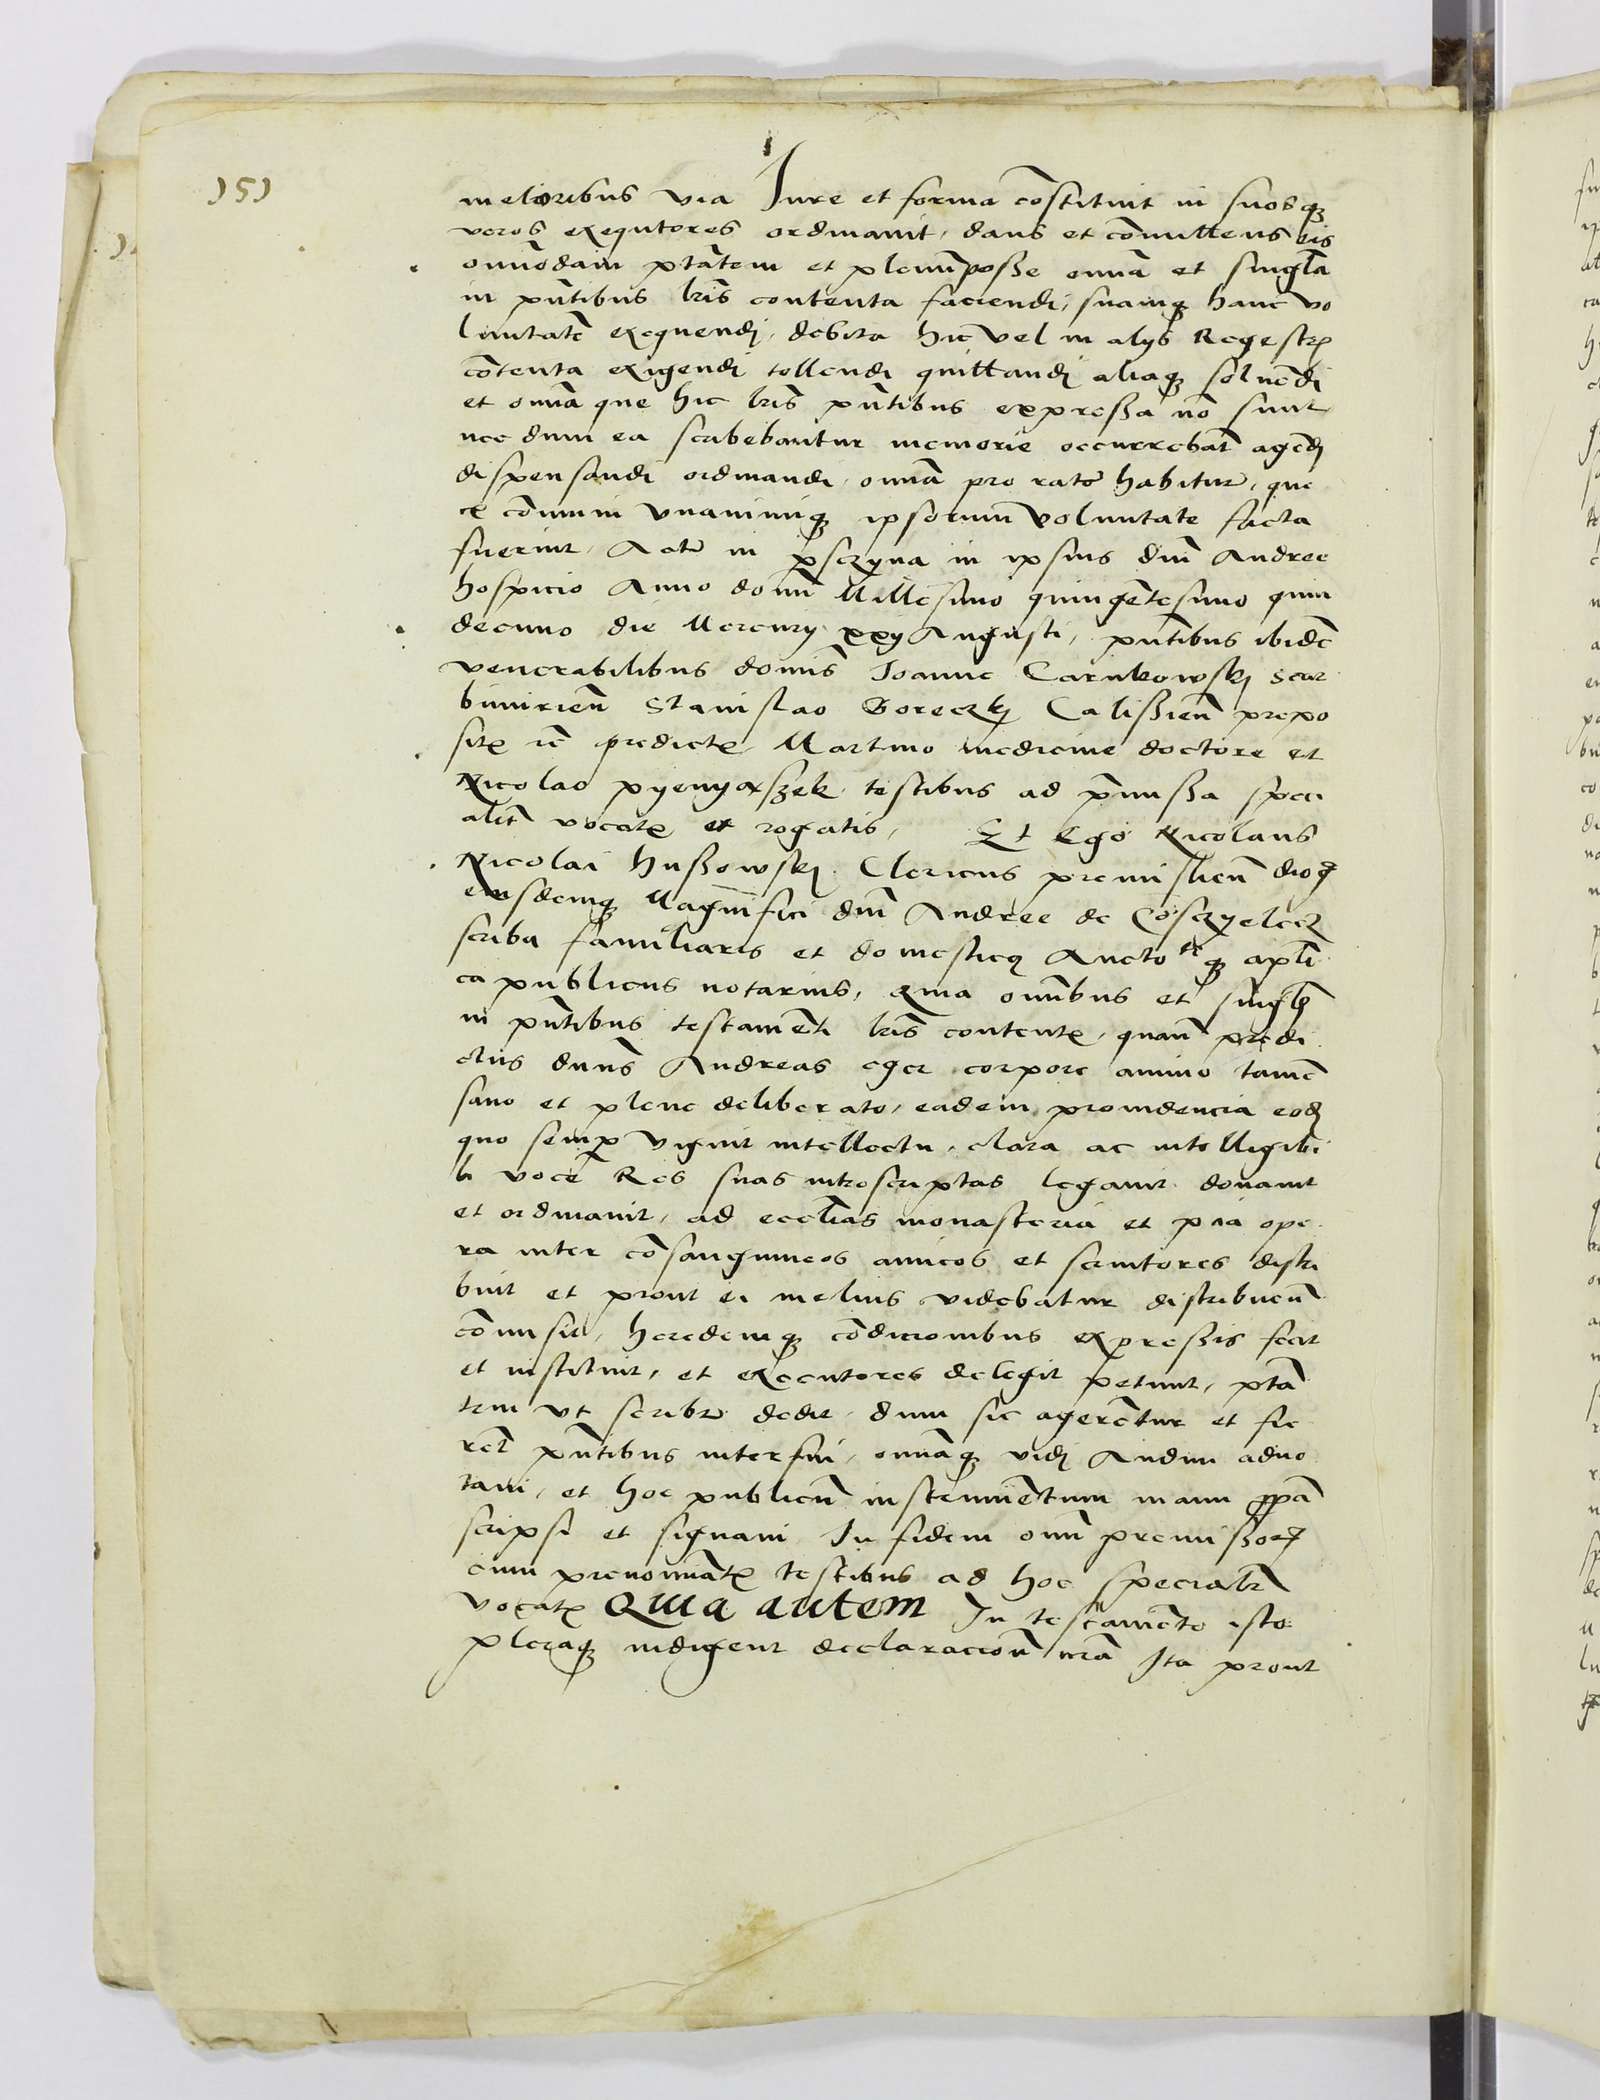 151
melioribus via Jure et forma cõstituit in suosq3
veros exequtores ordinavit, dans et comittens eis
omnẽodam ptãtem et plenũ posse omĩa et singl̃a
in pñtibus lr̃is contenta faciendi, suamq3 hanc vo
luntatẽ exequendj, debita hic vel in alys Regestr̃
cõtenta exigendj tollendi quittandj aliaq3 solvẽdj
et omĩa que hic lr̃is pñtibus expressa nõ sunt,
nec dum ea scribebantur memorie occurrebãt agẽdj
dispensandi ordinandi, omĩa pro rato habitur, que
ex cõmuni unanimiq3 ipsorum voluntate facta
fuerint. Actũ in psczyna in ipsius dñi Andree
hospicio Anno domĩ Millesimo quingẽtesimo quin
decimo die Mercurij xxij Augusti, pñtibus ibidẽ
venerabilibus domĩs Joanne Carnkowskj scar
bimiriẽn Stanislao Boreczkj Calissieñ prepo
sit̃ predict̃ Martino medicine doctore et
Nicolao pyenyąszek testibus ad p̃missa speci
alit̃ vocat̃ et rogatis, Et Ego Nicolaus
Nicolai hussowskj Clericus premislieñ dioc̃
eiusdemq3 Magnifici dñi Andree de Cosczyelecz
scriba familiaris et domesticꝯ Auctoteq3 apl̃i
ca publicus notarius, Quia omĩbus et singl̃
in pñtibus testamẽti lr̃is content̃, quem predi
ctus dñus Andreas eger corpore animo tamẽ
sano et plene deliberato, eadem providencia eodj
quo semp viguit intellectu, clara ac intelligibi
li voce Res suas introscriptas legavit donavit
et ordinavit, ad eccl̃ias monasteria et pia ope
ra inter cõsanguineos amicos et servitores distri
buit et prout ei melius videbatur distribuenũ
cõmisit, heredemq3 cõdicionibus expressis fecit
et instituit, et executores delegit petiuit, ptã
tem ut scribr̃ dedit, dum sic agerẽtur et fie
rẽt pñtibus interfui, omĩaq3 vidj Audivi adno
tavi, et hoc publicũ instrumẽtum manu ppã
scripsi et signavi In fidem omĩ premissoꝝ
cum prenomĩat̃ testibus ad hoc specialit̃
vocat̃ Quia autem In testamẽto isto
pleraq3 indigent declaracioñ nr̃a Ita prout